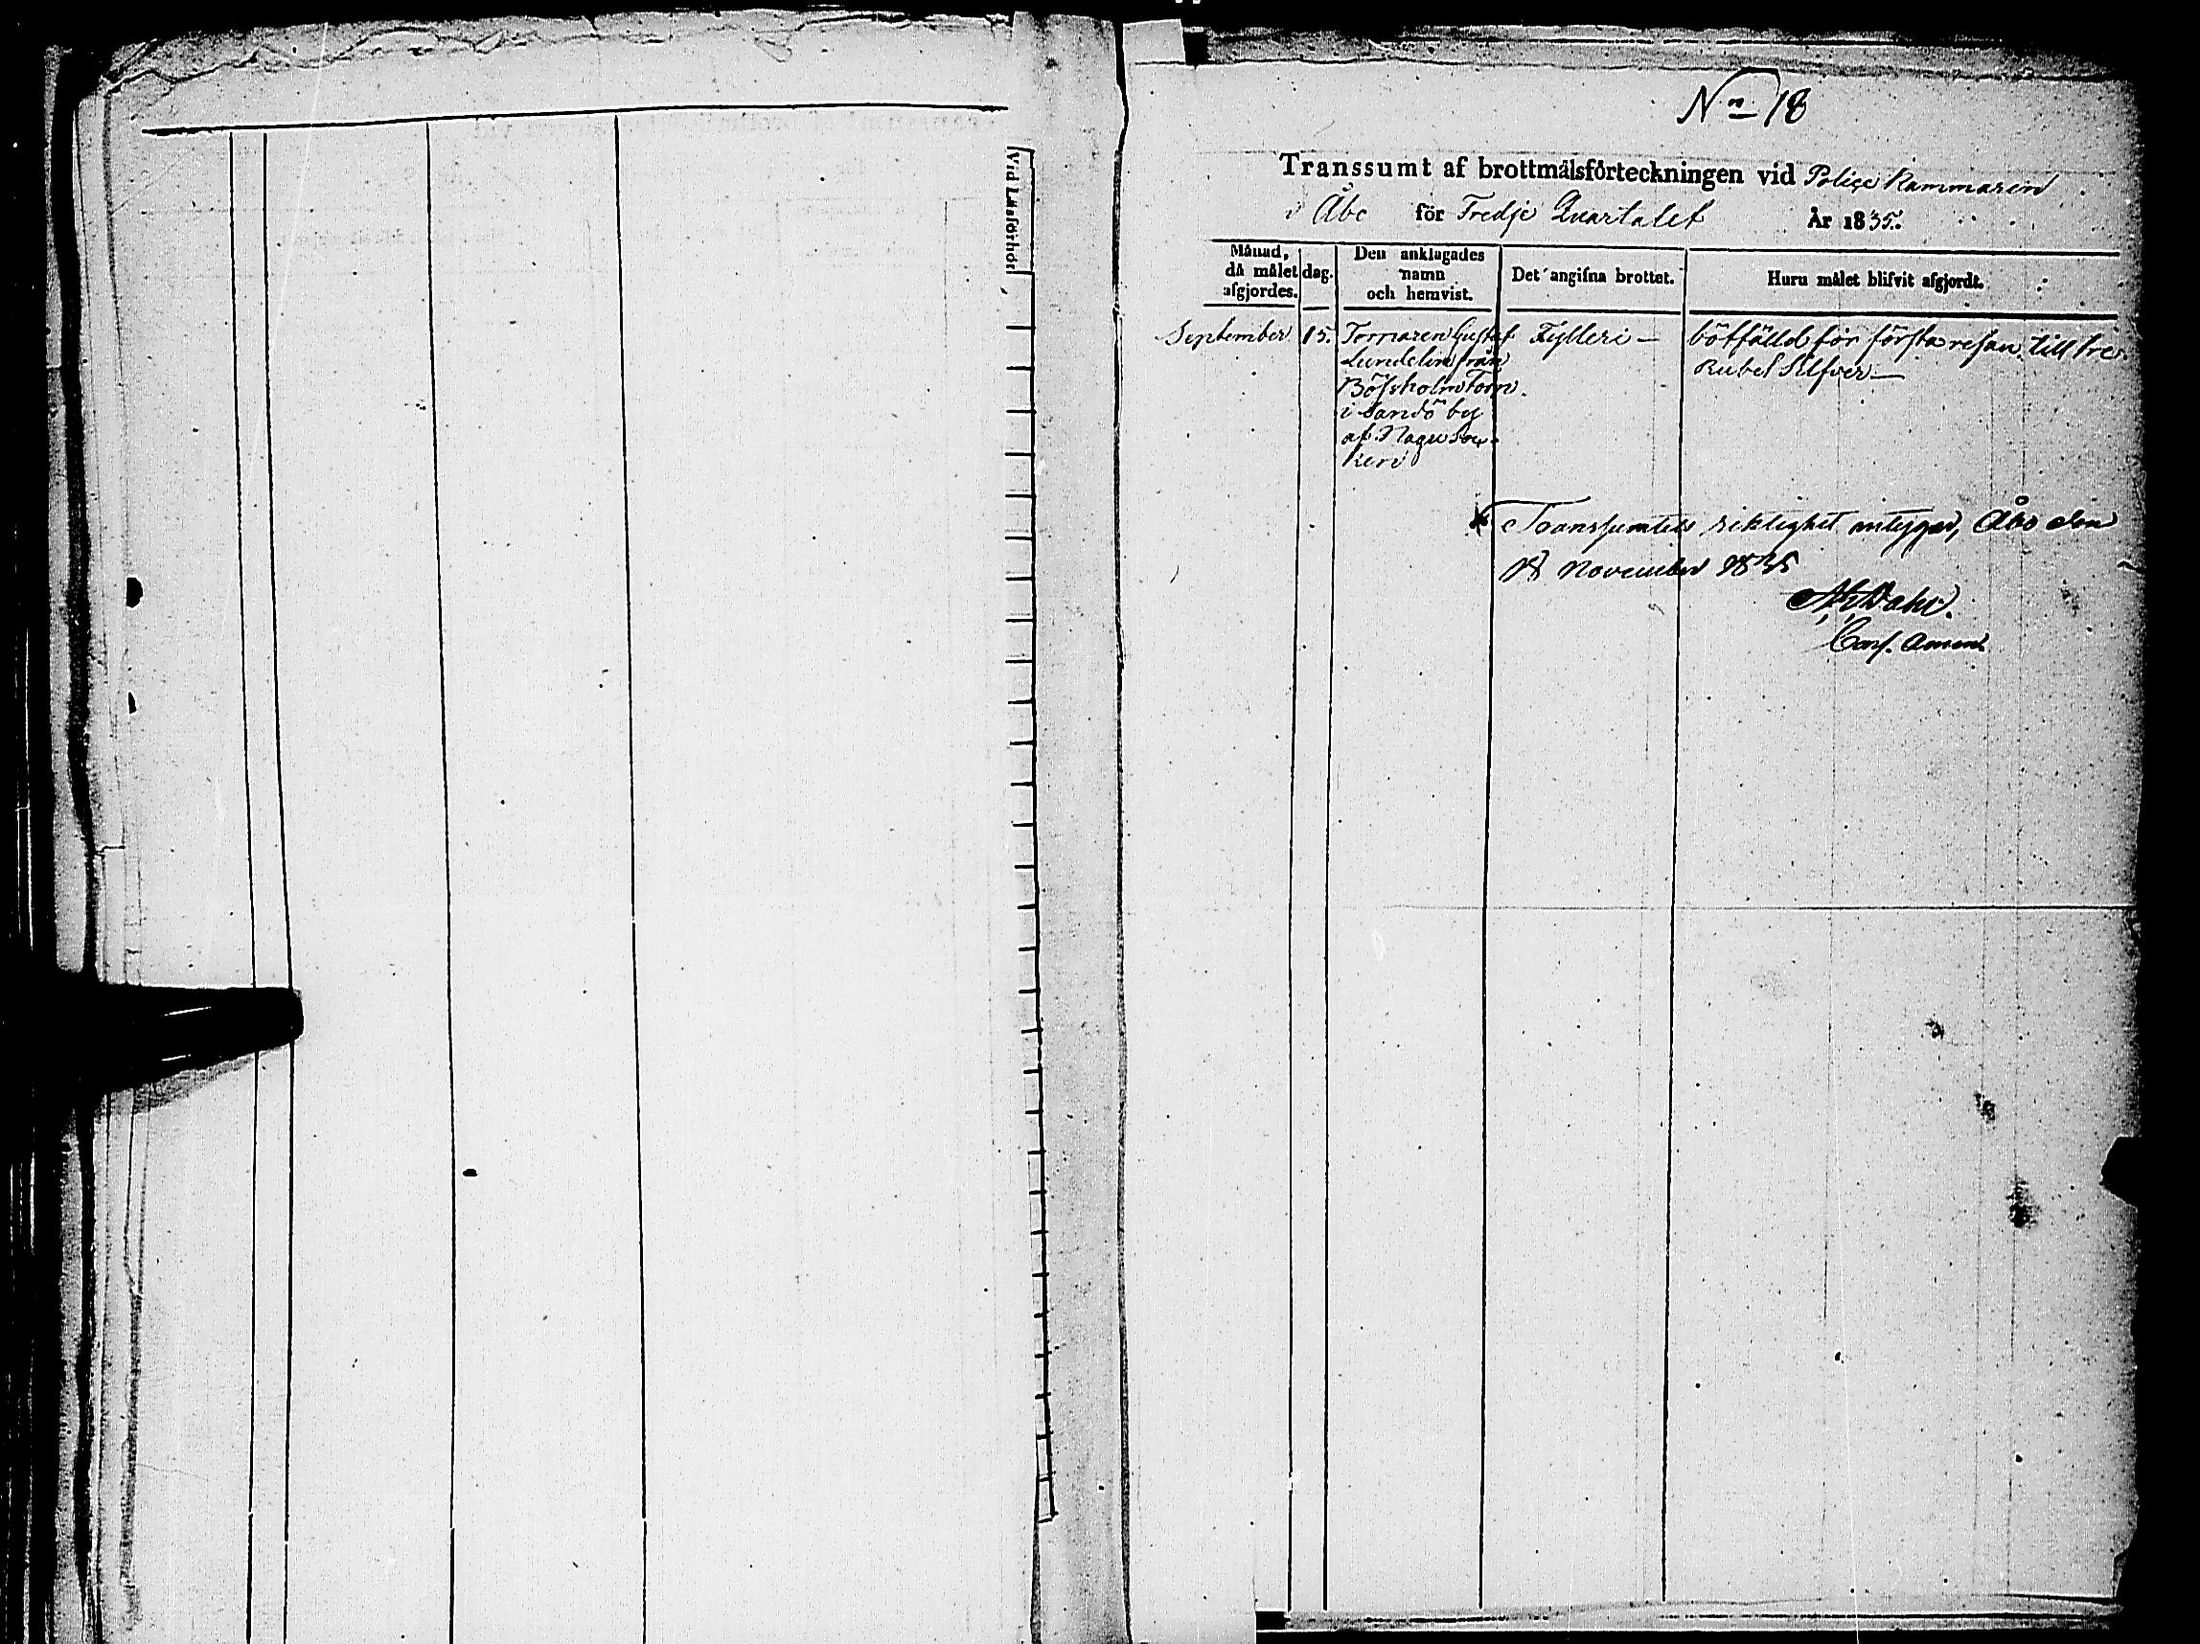 Vid Läsförhör
No 18
Transsumt af brottmålsförteckningen vid Poliçe Kammaren
i Åbo för Tredje Quartalet År 1835.
Månad, då målet afgjordes.
dag.
Den anklagades namn och hemvist.
Det angifna brottet.
Huru målet blifvit afgjordt.
September 15. Torparen Gustaf Fylleri — bötfälld för första resan till tre
Lundelin från Rubel Silfver —
Bössholm Torp
i Sandö by
af Nagu Soc-
ken
Transsumtets riktighet intygar, Åbo den
18 November 1835